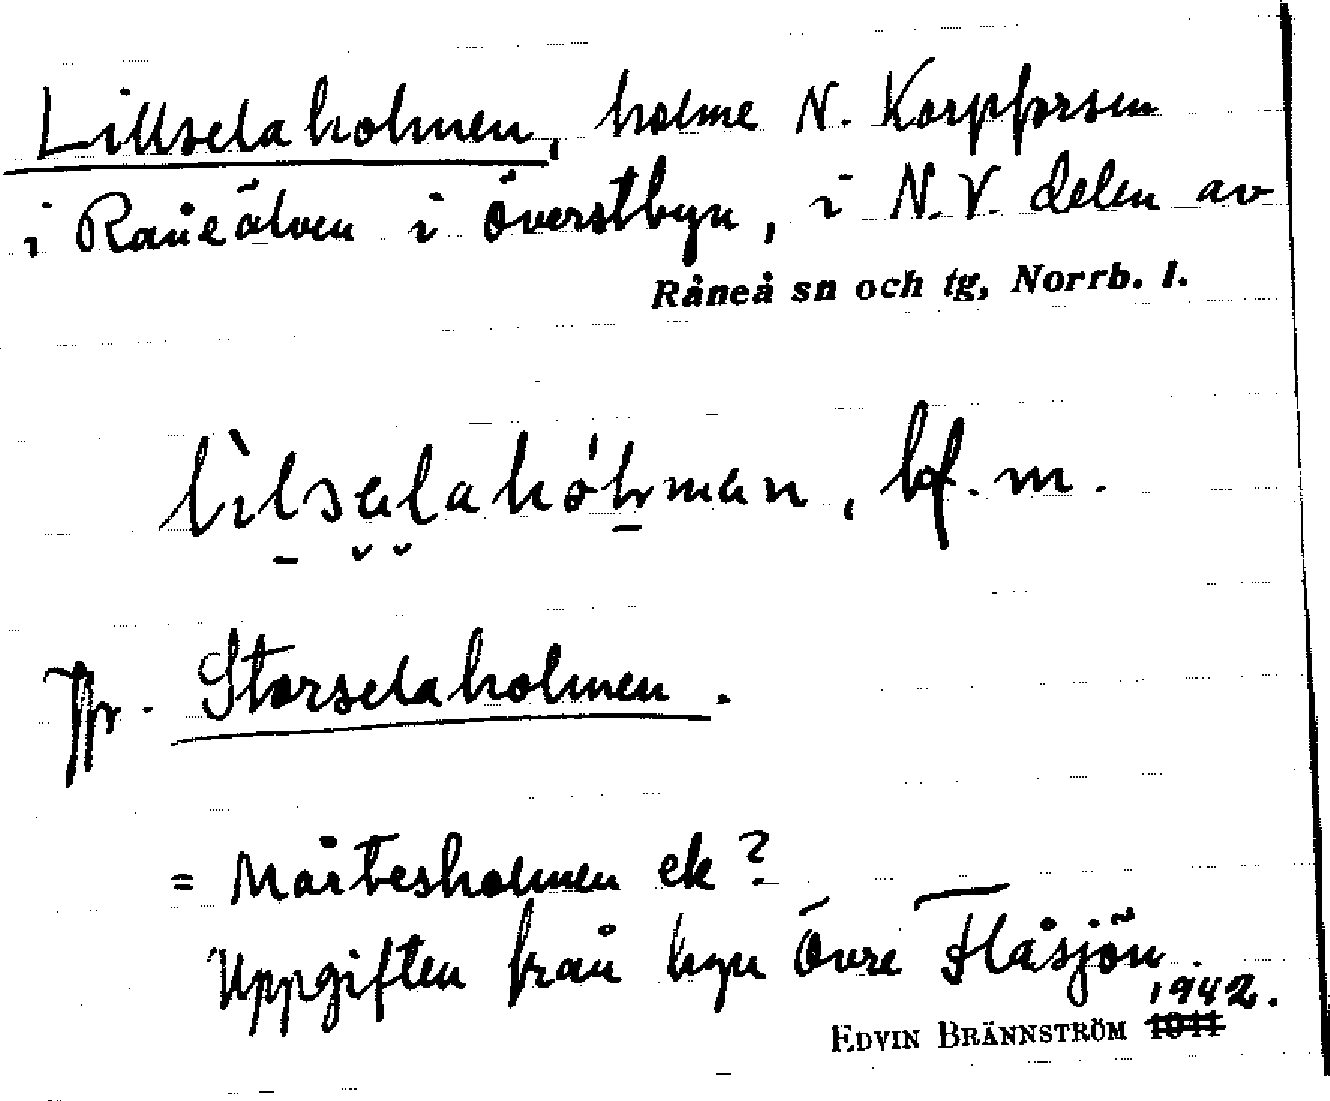 Lillselaholmen, holme N. Korpforsen
i Råneälven i Överstbyn, i N.V. delen av
Råneå sn och tg, Norrb. l.
bf. m.
Jfr. Storselaholmen.
= Mårtesholmen ek?
Uppgiften från byn Övre Flåsjön.
1942.
EDVIN BRÄNNSTRÖM 1941